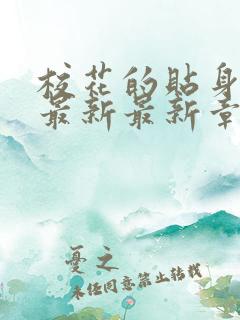 校花的贴身
最新最新章
忧之
未经同意禁止转载